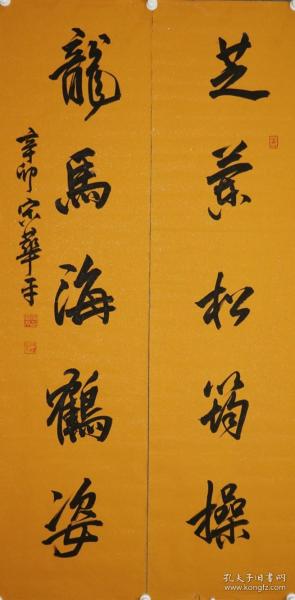 芝兰松筠操
龍馬海鶴姿
辛卯宋華平
孔夫子旧书网